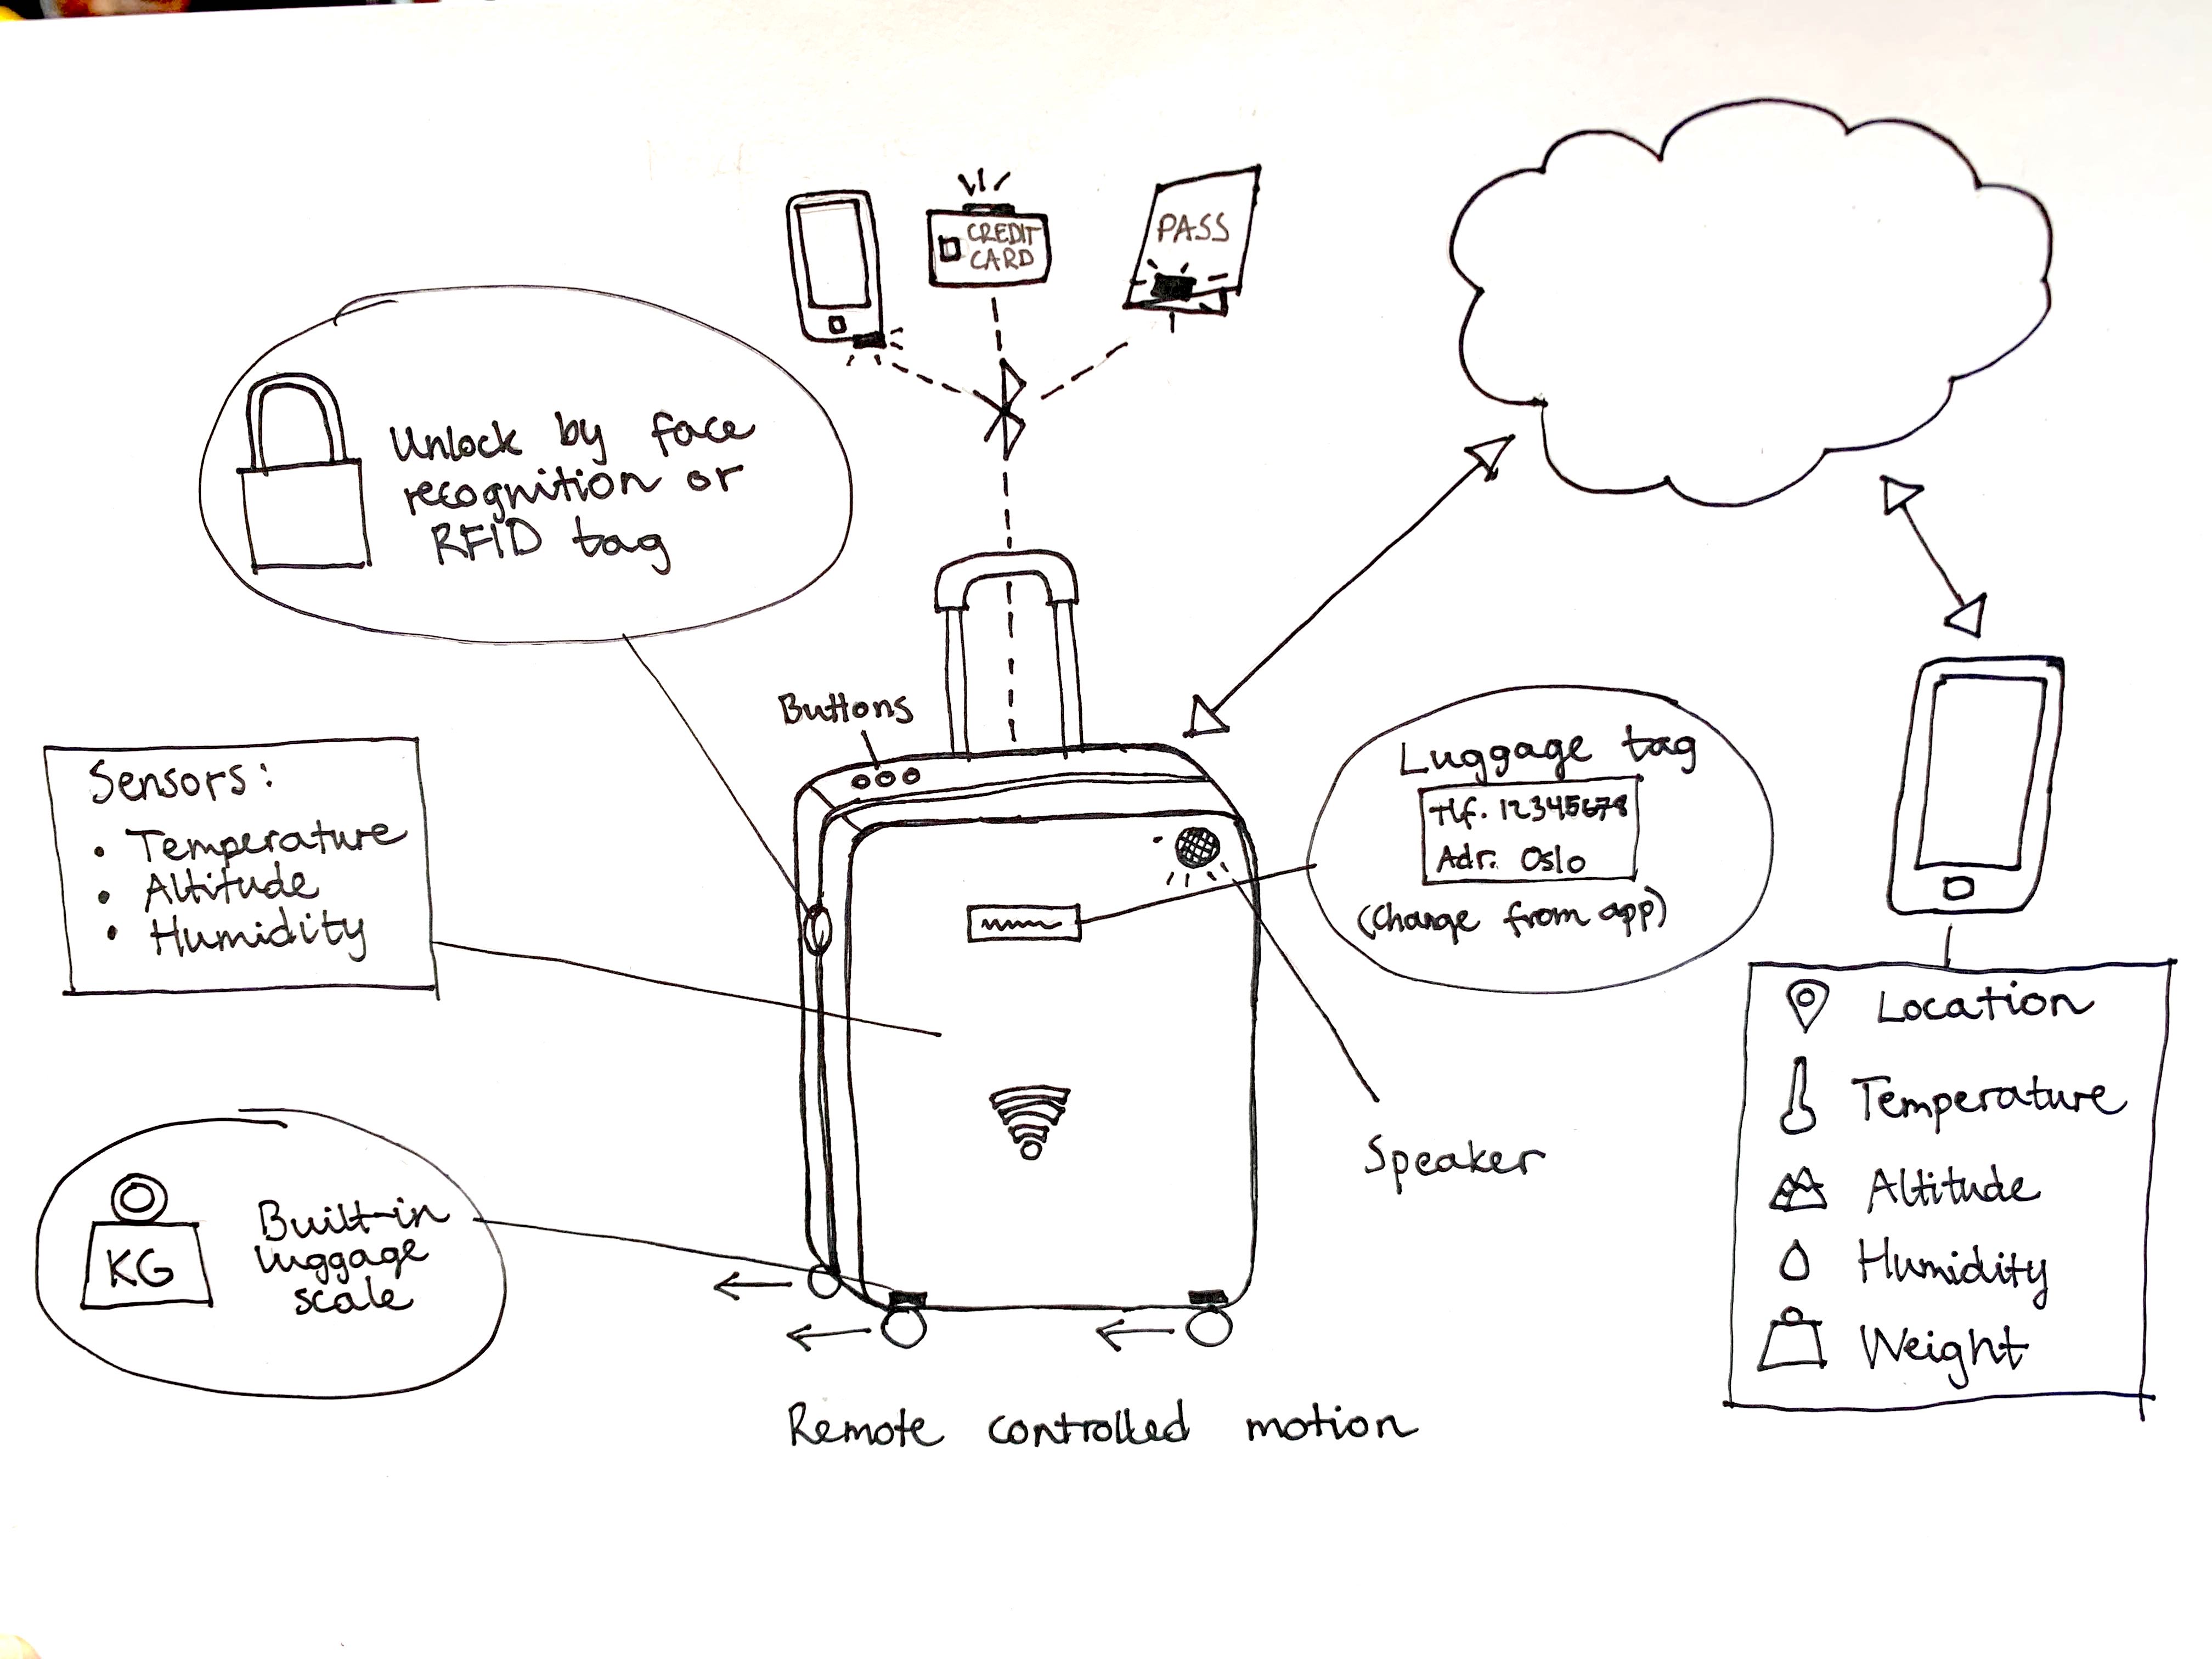 CREDIT
CARD
PASS
Unlock by face
recognition or
RFID tag
Buttons
Sensors:
• Temperature
• Altitude
• Humidity
Luggage tag
Tlf. 12345678
Adr. Oslo
(Change from app)
Location
Temperature
Altitude
Humidity
Weight
Speaker
KG
Built-in
luggage
scale
Remote controlled motion